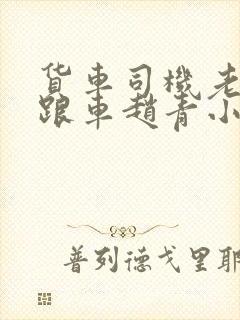 货车司機老
跟車趙青小
普列德戈里耶